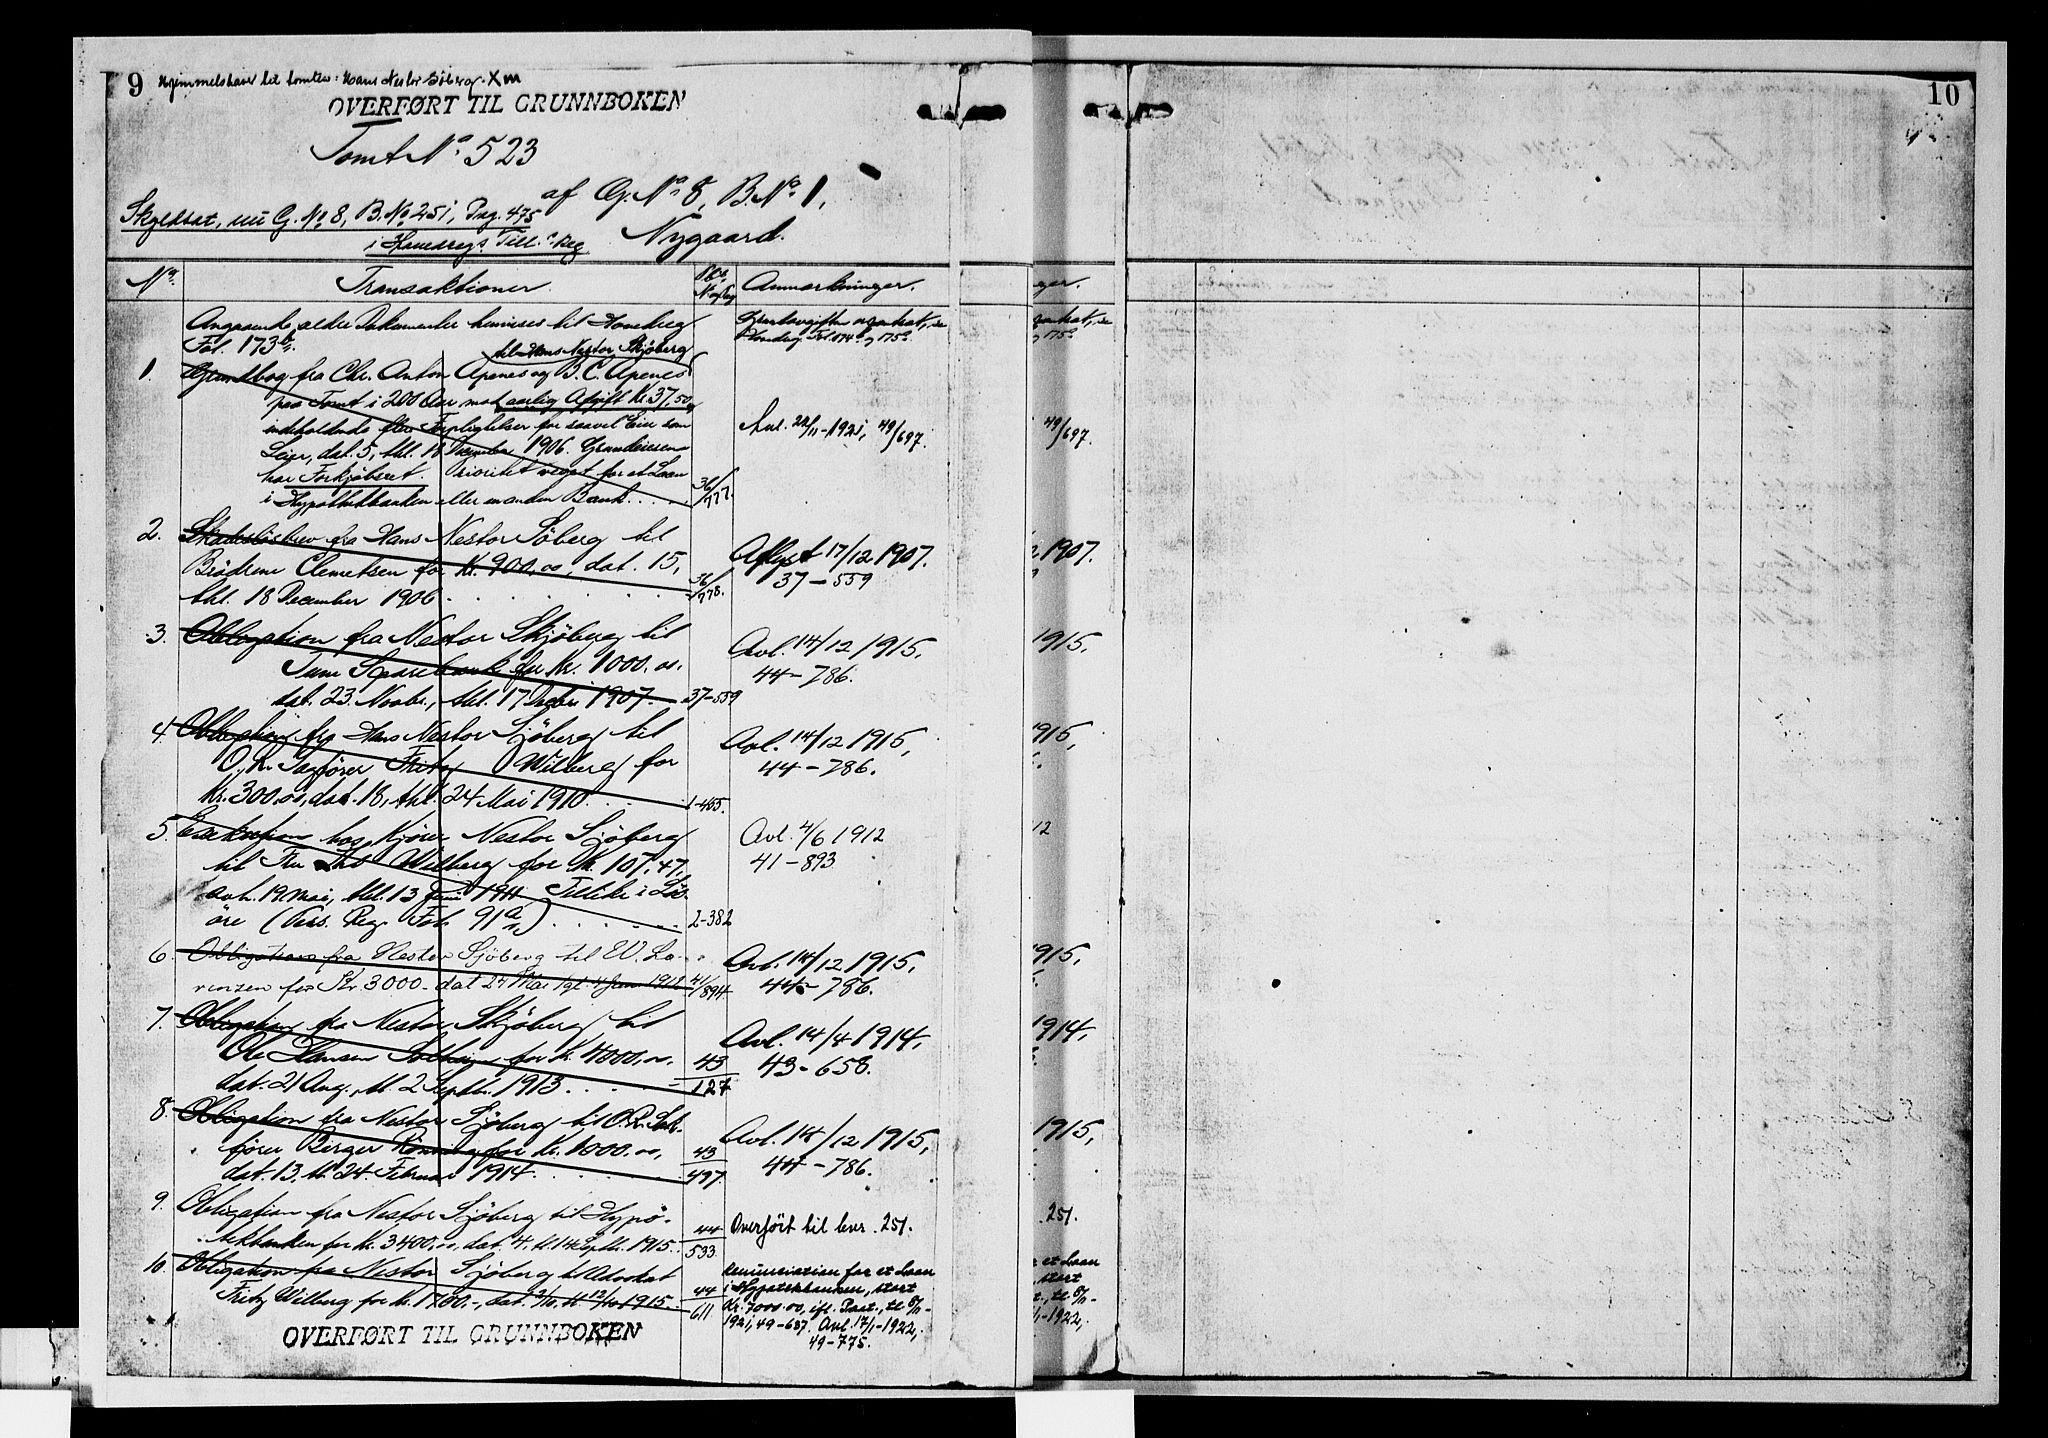 9 Hjemmelshaver til tomten: Hans Nestor Söberg. Xm
OVERFØRT TIL GRUNNBOKEN
Tomt No 523
af G. No 8, B. No 1,
Skyldsat, nu G. No 8, B. No 251, Pag. 475
i Till. Reg.
Nygaard.
No. Transaktioner Anmærkninger.
Angaaende ældre Dokumenter henvises til
Fol. 173b.
til Hans Nestor Skjöberg
1. Grundbog fra Chr. Anton Apenes og B. C. Apenes
paa Tomt i 200 Aar mod aarlig Afgift Kr. 37,50,
indholdende flere Forpligtelser for saavel Eier som
Leier, dat. 5, thl. 18 December 1906. Grundeieren
har Forkjöbsret. Prioritet veget for et Laan
i Hypothekbanken eller en anden Bank. 36/777.
Avl. 22/11-1921, 49/697.
2. Skadeslösbrev fra Hans Nestor Söberg til
Brödrene Clemetsen for Kr. 900,00, dat. 15,
thl. 18 December 1906 36/778.
Aflyst 17/12 1907.
37-559
3. Obligation fra Nestor Skjöberg til
Tune Sparebank for Kr. 1000.00.
dat. 23. Novbr., thl. 17 Decbr. 1907. 37-559
Avl. 14/12 1915,
44-786.
4. Obligation fra Hans Nestor Sjöberg til
O. R. Sagförer Fritz Wilberg for
Kr. 300,00, dat. 18, thl. 24 Mai 1910. 1-455.
Avl. 14/12 1915,
44-786.
5. Exekution hos Kjörer Nestor Sjöberg
til Fru Wilberg for Kr. 107.47,
avh. 19. Mai, thl. 13 Juni 1911 Tillike i Lös-
öre (Pers. Reg. Fol. 91a) 2-382
Avl. 4/6 1912
41-893
6. Obligation fra Nestor Sjöberg til W. Lo-
rensen for Kr. 3000.- dat 24 Mai tgl. 4 Juni 1912 41/894
Avl. 14/12 1915,
44-786.
7. Obligation fra Nestor Skjöberg til
Ole Hansen Solheim for Kr. 4000,00.
dat. 21 Aug., tl. 2 Septbr. 1913 43/127
Avl. 14/4 1914,
43-658.
8. Obligation fra Nestor Sjöberg til O. R. Sak-
förer Birger Rönning for Kr. 1000.00,
dat. 13, tl. 24. Februar 1914. 43/497.
Avl. 14/12 1915,
44-786.
9. Obligation fra Nestor Sjöberg til Hypo-
tekbanken for Kr. 3400,00, dat. 4, tl. 14 Septbr. 1915. 44/533.
Overfört til bnr. 251.
10. Obligation fra Nestor Sjöberg til Advokat
Fritz Wilberg for Kr. 1700.-, dat. 9/10, tl. 12/10 1915. 44/611
Renunciation for et Laan
i Hypotekbanken, stort
Kr. 7000.00, ifl. Paat., tl. 8/11-
1921, 49-687. Avl. 17/1-1922,
49-775.
OVERFØRT TIL GRUNNBOKEN
10